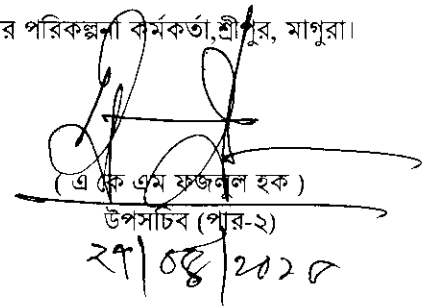 র পরিকল্পনা কর্মকর্তা,শ্রীপুর, মাগুরা।
( এ কে এম ফজলুল হক )
উপসচিব (পার-২)